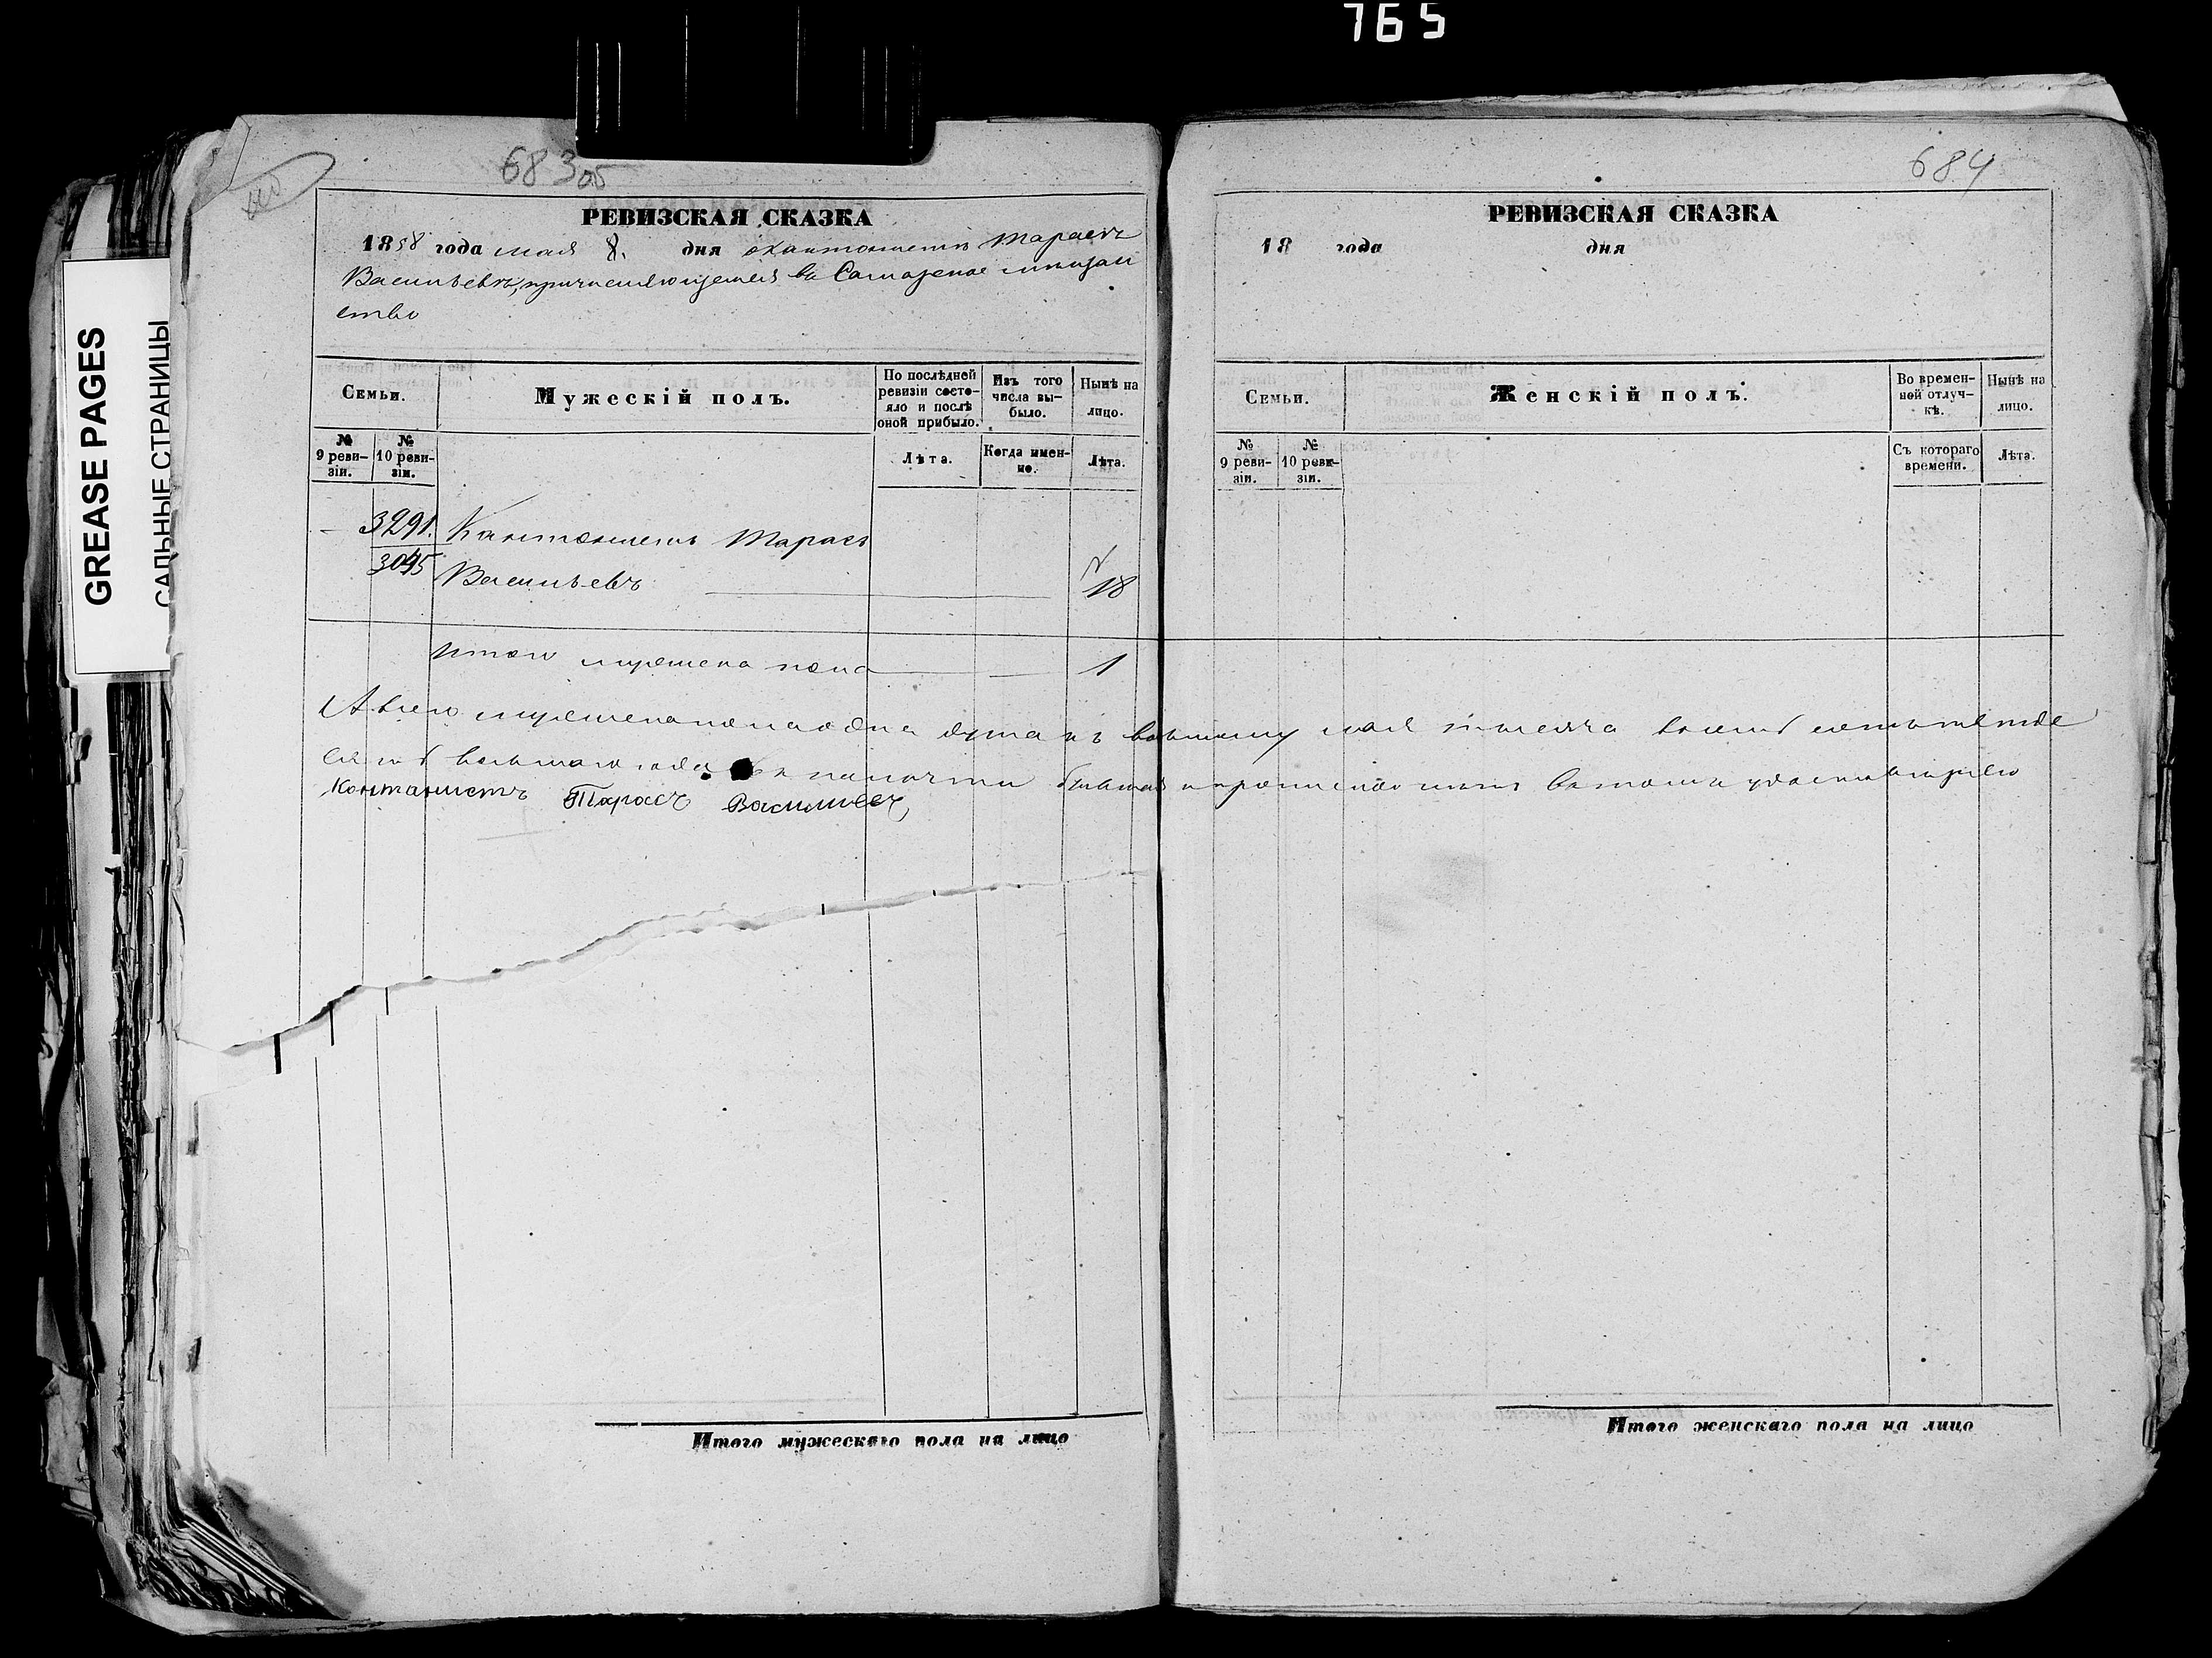 765
GREASE PAGES
САЛЬНЫЕ СТРАНИЦЫ
683 05
РЕВИЗСКАЯ СКАЗКА
1858 года мая 8. дня о кантонистѣ Тарасѣ
Васильевѣ, причисляющемся въ Самарское мѣщан
ство
Семьи.
Мужескій полъ.
По послѣдней ревизіи состояло и послѣ оной прибыло.
Изъ того числа выбыло.
Нынѣ на лицо.
№ 9 ревизіи.
№ 10 ревизіи.
Лѣта.
Когда именно.
Лѣта.
— 3291. Кантонистъ Тарасъ
3045 Васильевъ 18
Итого мужеска пола 1
А всего мужеска пола одна душа къ восьмому мая тысяча восемь сотъ пятьде
сятъ восьмаго года на
Контанистъ Тарасъ Василиевъ
684
РЕВИЗСКАЯ СКАЗКА
18 года дня
Семьи.
Женскій полъ.
Во временной отлучкѣ.
Нынѣ на лицо.
№ 9 ревизіи.
№ 10 ревизіи.
Съ котораго времени.
Лѣта.
Итого мужескаго пола на лицо
Итого женскаго пола на лицо